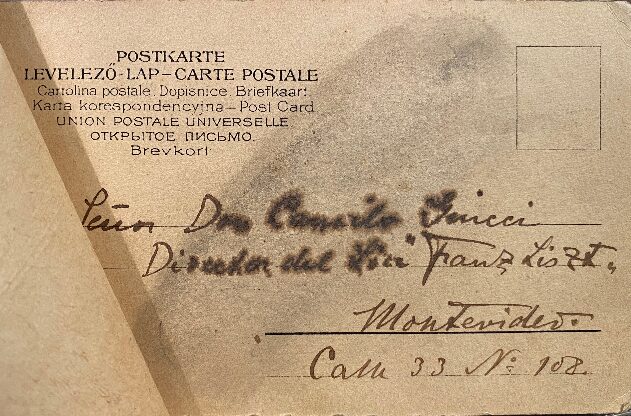 POSTKARTE
LEVELEZŐ-LAP–CARTE POSTALE
Cartolina postale. Dopisnice. Briefkaart
Karta korespondencyjna – Post Card
UNION POSTALE UNIVERSELLE
ОТКРЫТОЕ ПИСЬМО
Brevkort
Señor Don Camilo Giucci
Director del "Franz Liszt"
Montevideo.
Calle 33 Nº 108.